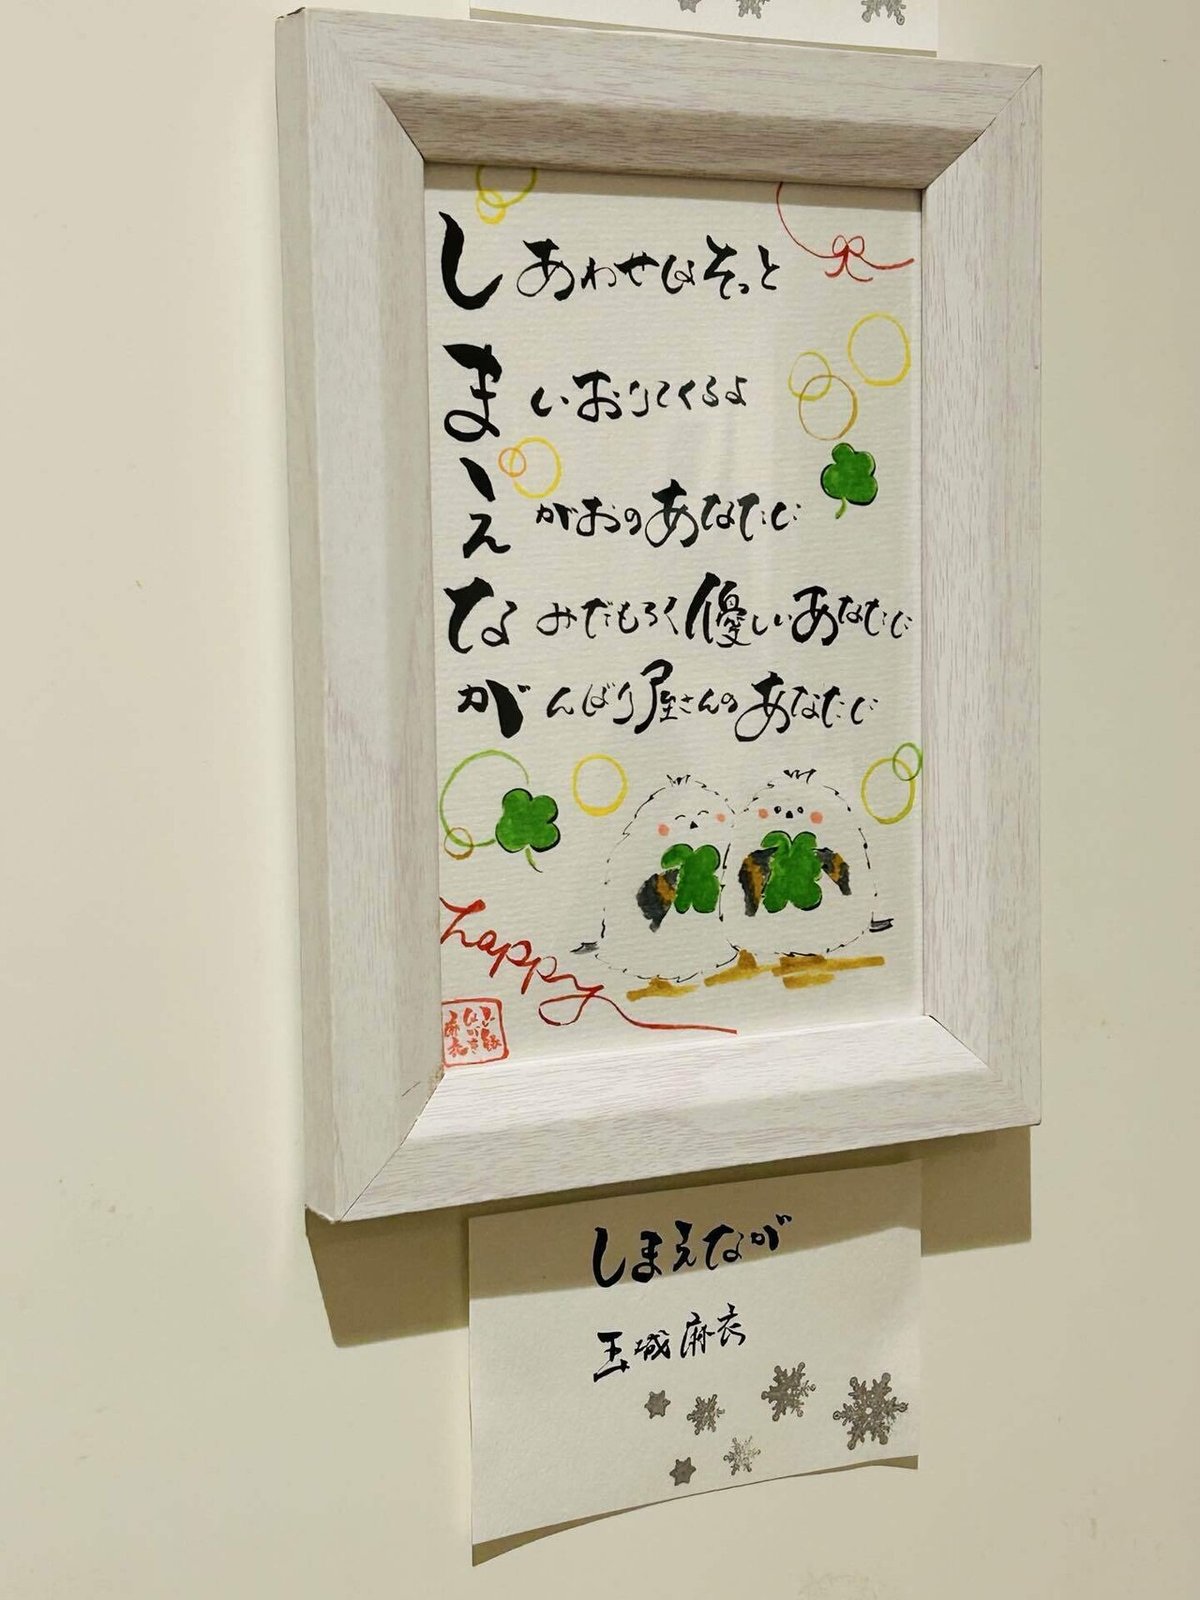 しあわせはそっと
まいおりてくるよ
えがおのあなたに
なみだもろく優しいあなたに
がんばり屋さんのあなたに
happy
しまえなが
玉城麻衣